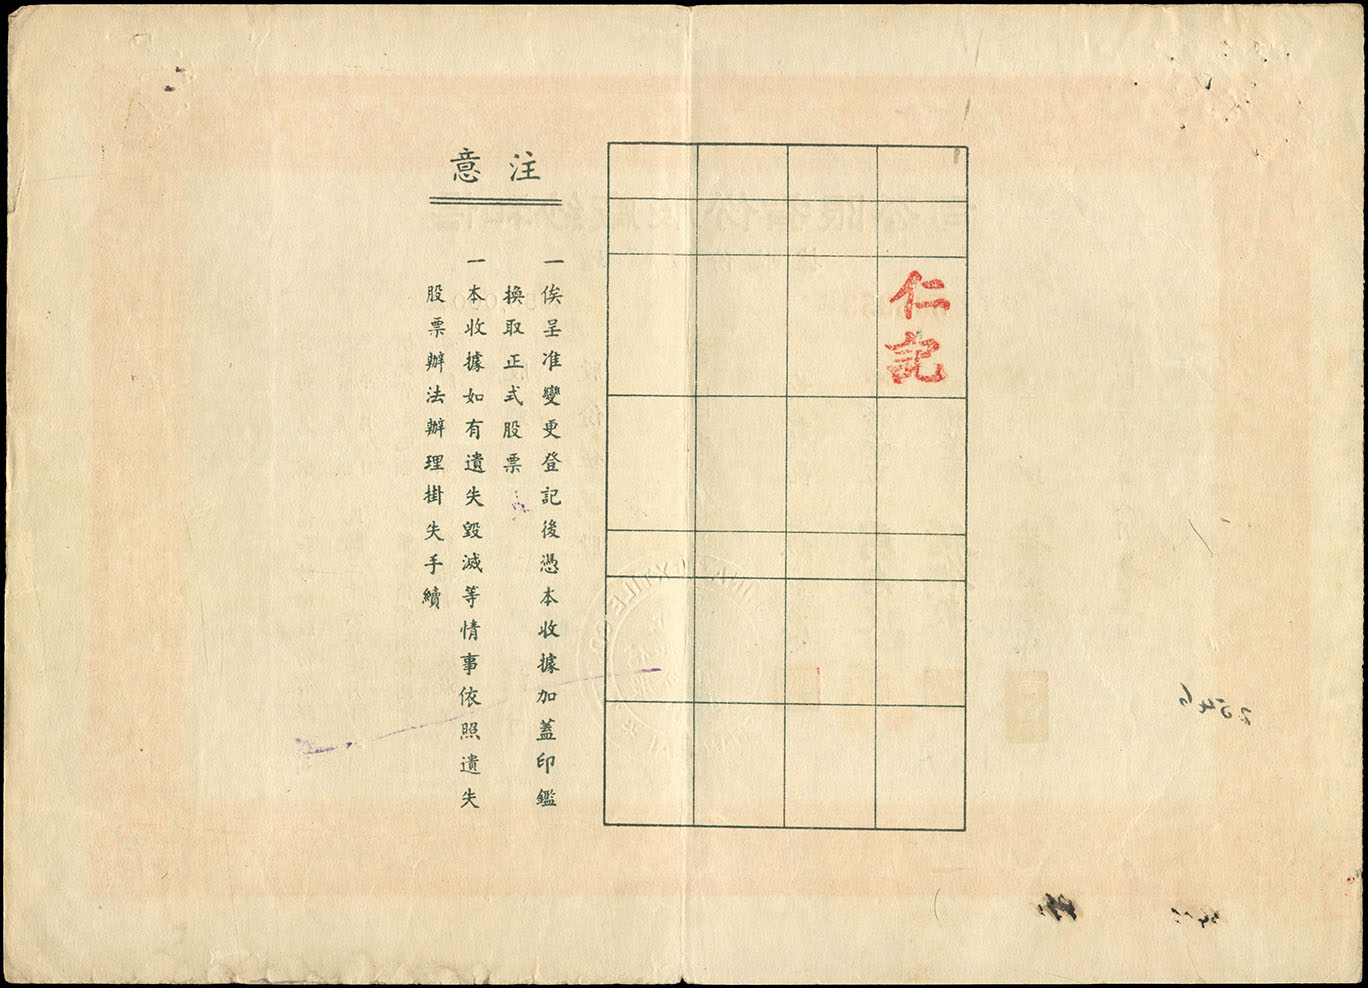 仁記
注意
一俟呈准變更登記後憑本收據加蓋印鑑
換取正式股票
一本收據如有遺失毀滅等情事依照遺失
股票辦法辦理掛失手續